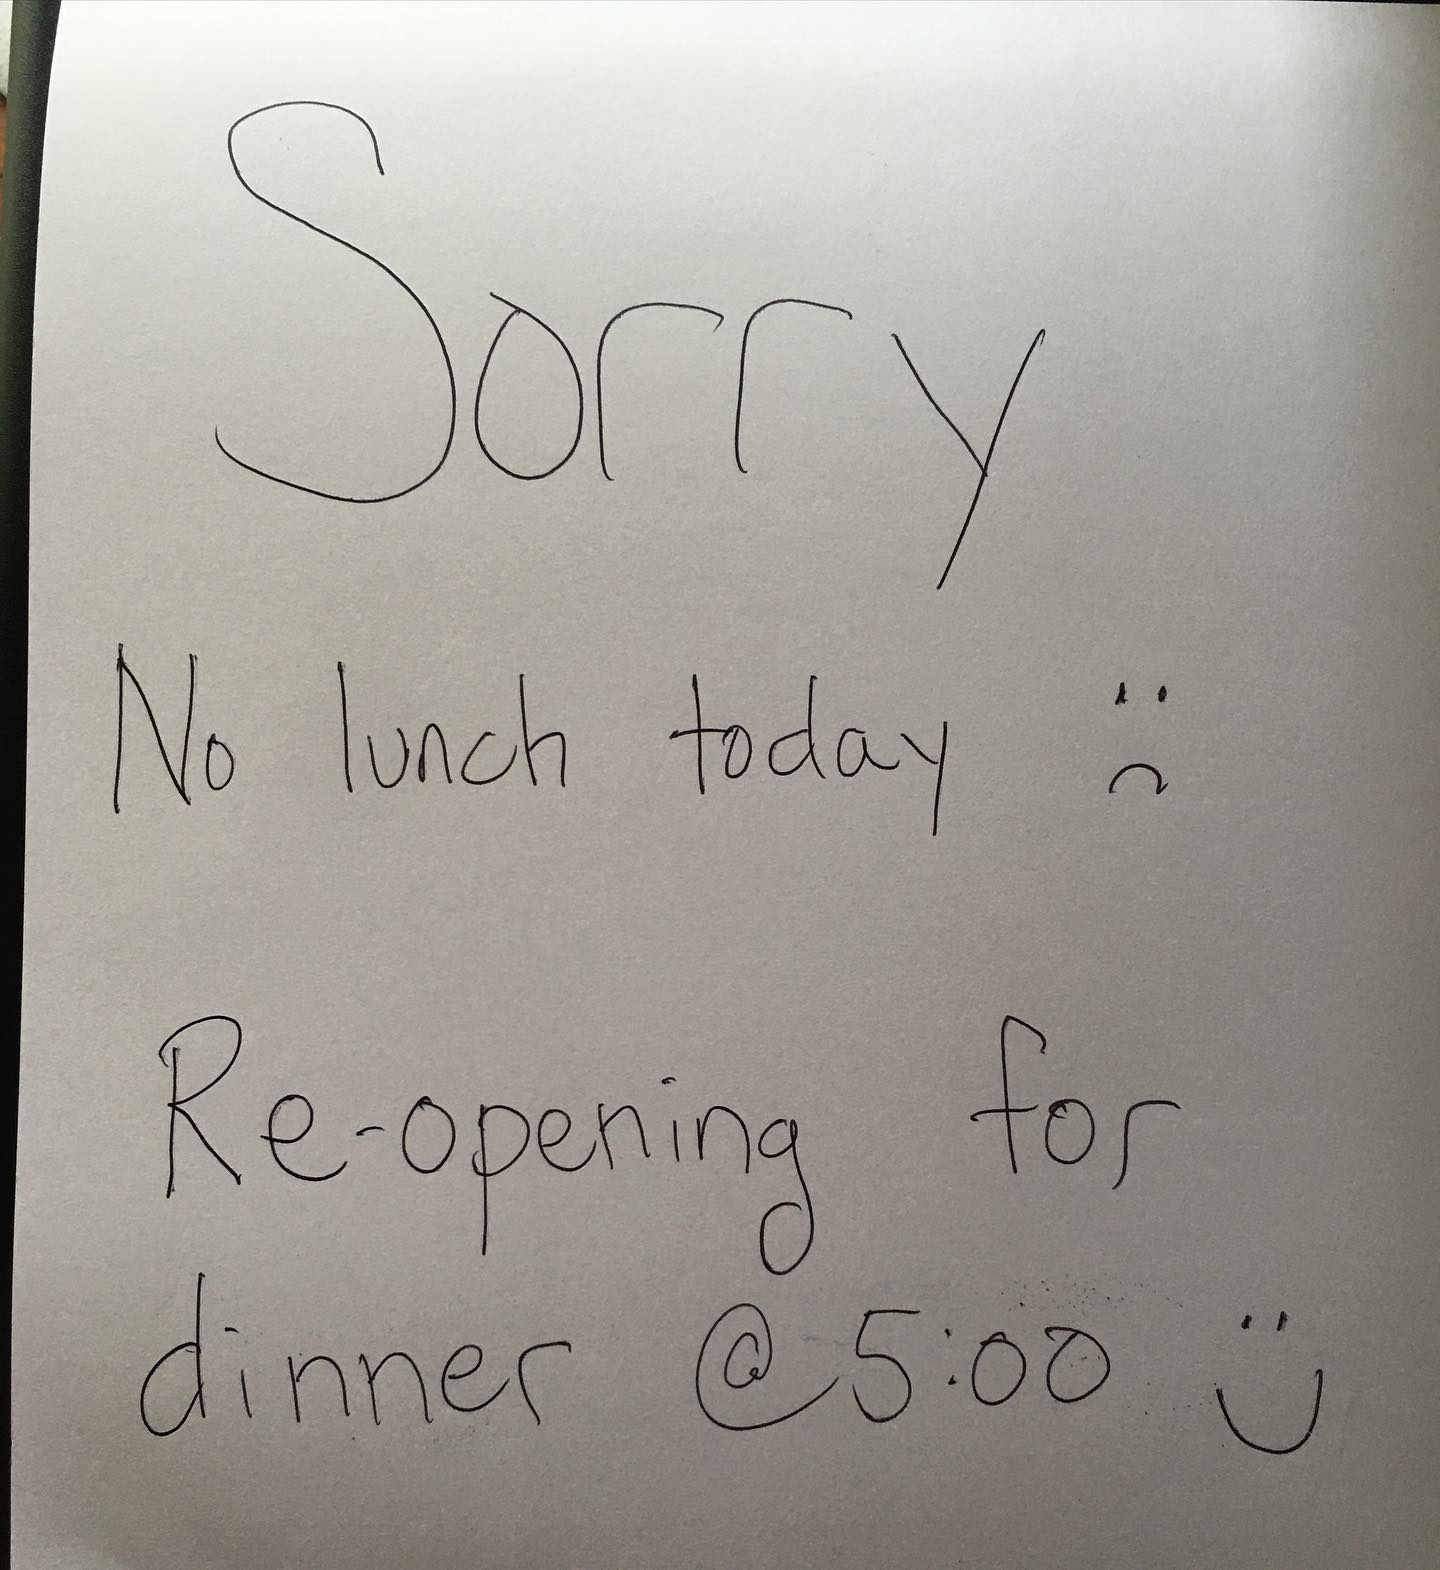 Sorry
No lunch today :(
Re-opening for
dinner @ 5:00 :)